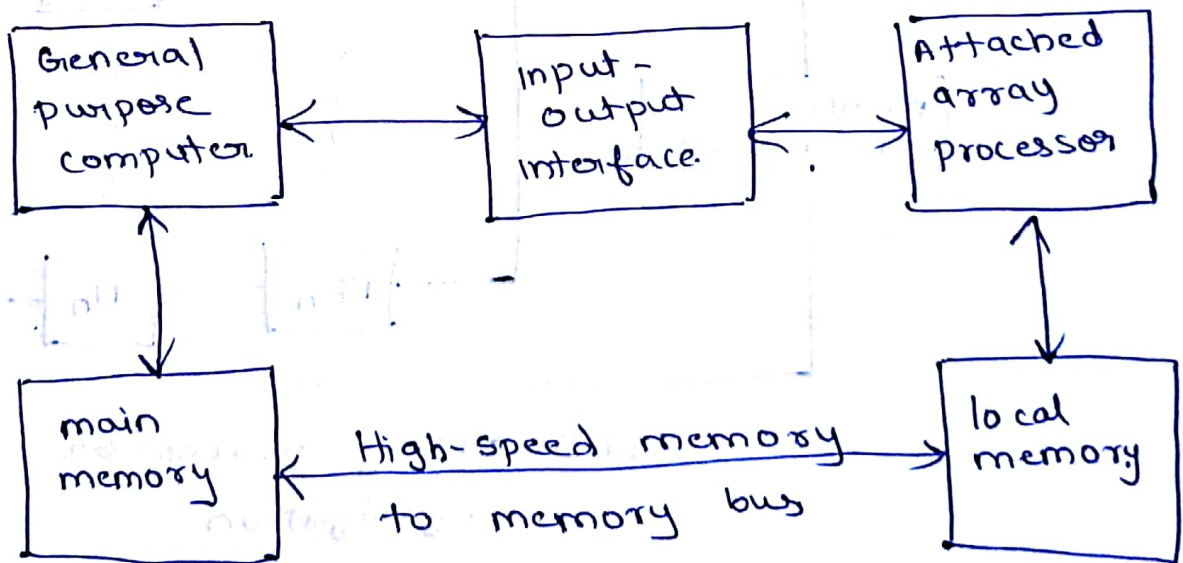 General
purpose
computer.
Input-
output
interface.
Attached
array
processor
main
memory
High-speed memory
to memory bus
local
memory.